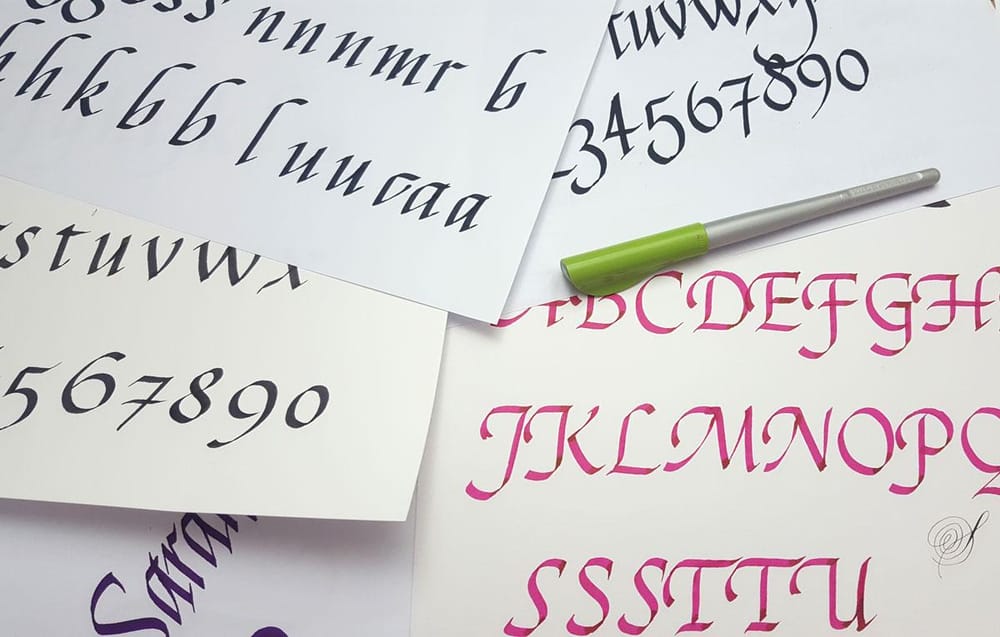 nnnmr b
hhkbb luucaa
tuvwxy
34567890
stuvwx
567890
ABCDEFGH
JKLMNOPQ
SSSTTU
Sarah